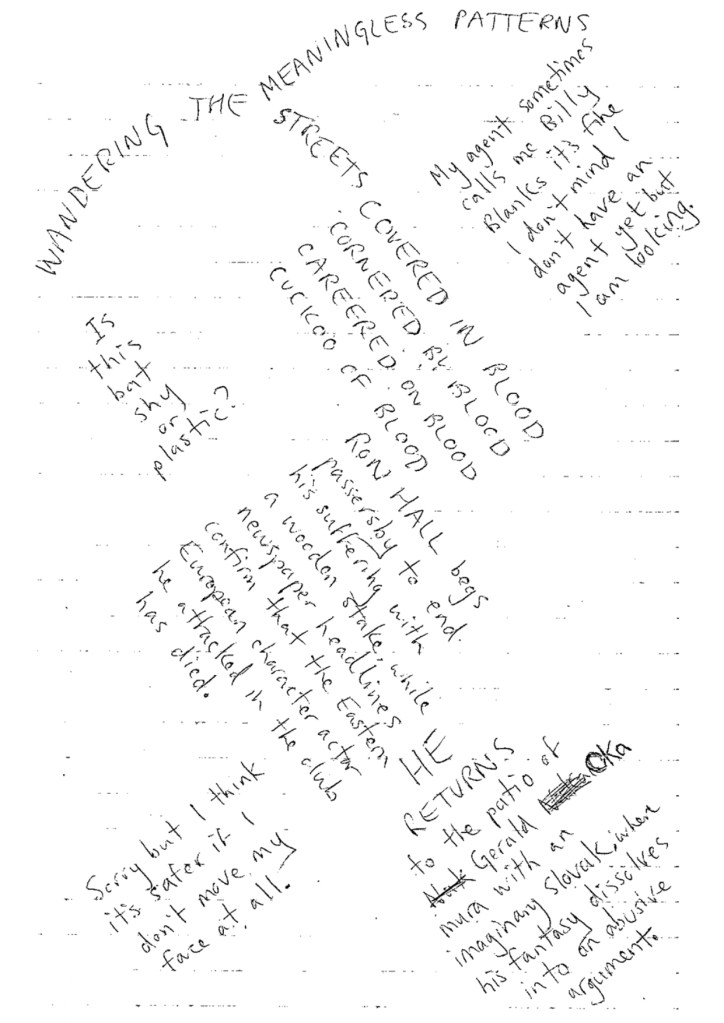 WANDERING THE MEANINGLESS PATTERNS
STREETS COVERED IN BLOOD
CORNERED BY BLOOD
CAREERED ON BLOOD
CUCKOO OF BLOOD
My agent sometimes
calls me Billy
Blanks it's fine
I don't mind I
don't have an
agent yet but
I am looking.
Is
this
bat
shy
or
plastic?
RON HALL begs
passersby to end
his suffering with
a wooden stake, while
newspaper headlines
confirm that the Eastern
European character actor
he attacked in the club
has died.
HE
RETURNS
to the patio of
Gerald Oka
mura with an
imaginary Slovak, where
his fantasy dissolves
into an abusive
argument.
Sorry but I think
it's safer if I
don't move my
face at all.